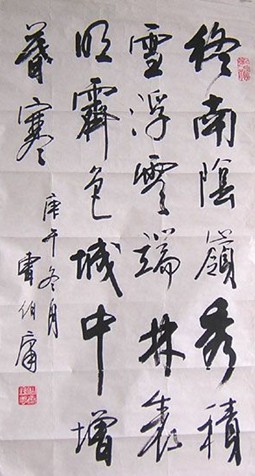 終南陰嶺秀積
雪浮雲端林表
明霽色城中增
暮寒
庚午冬月
雷伯庸